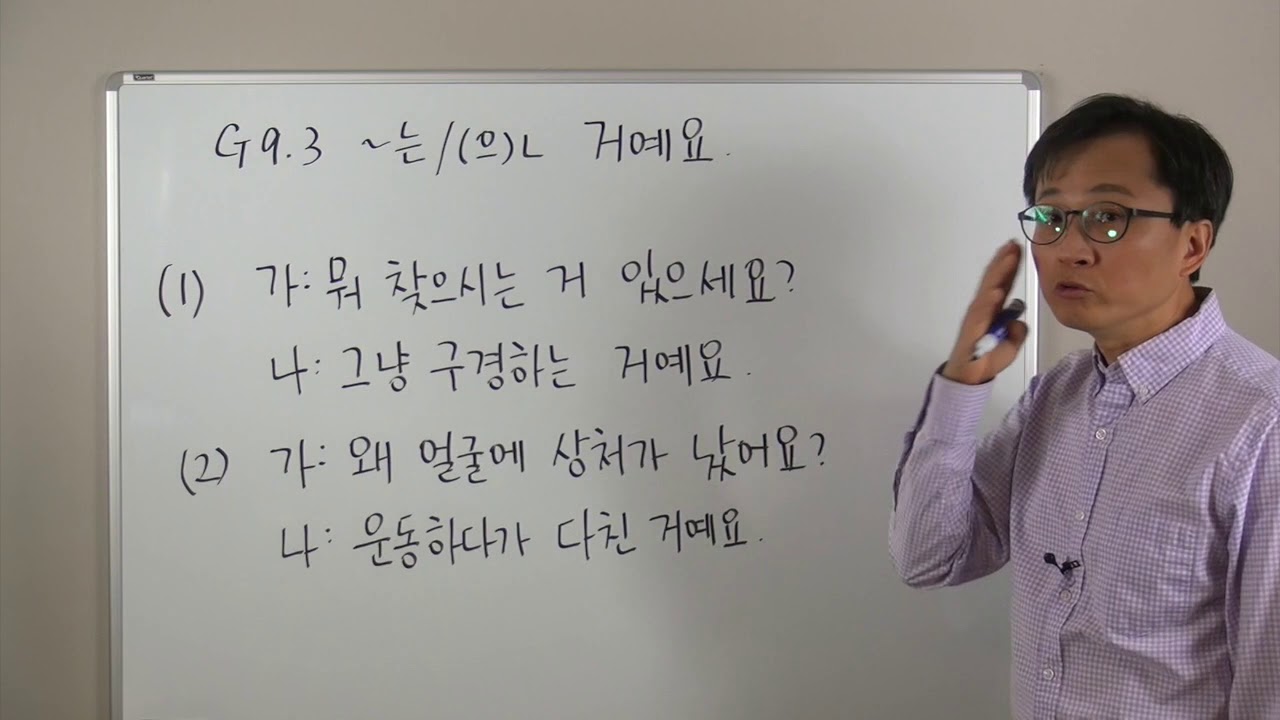 G9.3 ~는/(으)ㄴ 거예요.
(1) 가: 뭐 찾으시는 거 있으세요?
나: 그냥 구경하는 거예요.
(2) 가: 왜 얼굴에 상처가 났어요?
나: 운동하다가 다친 거예요.